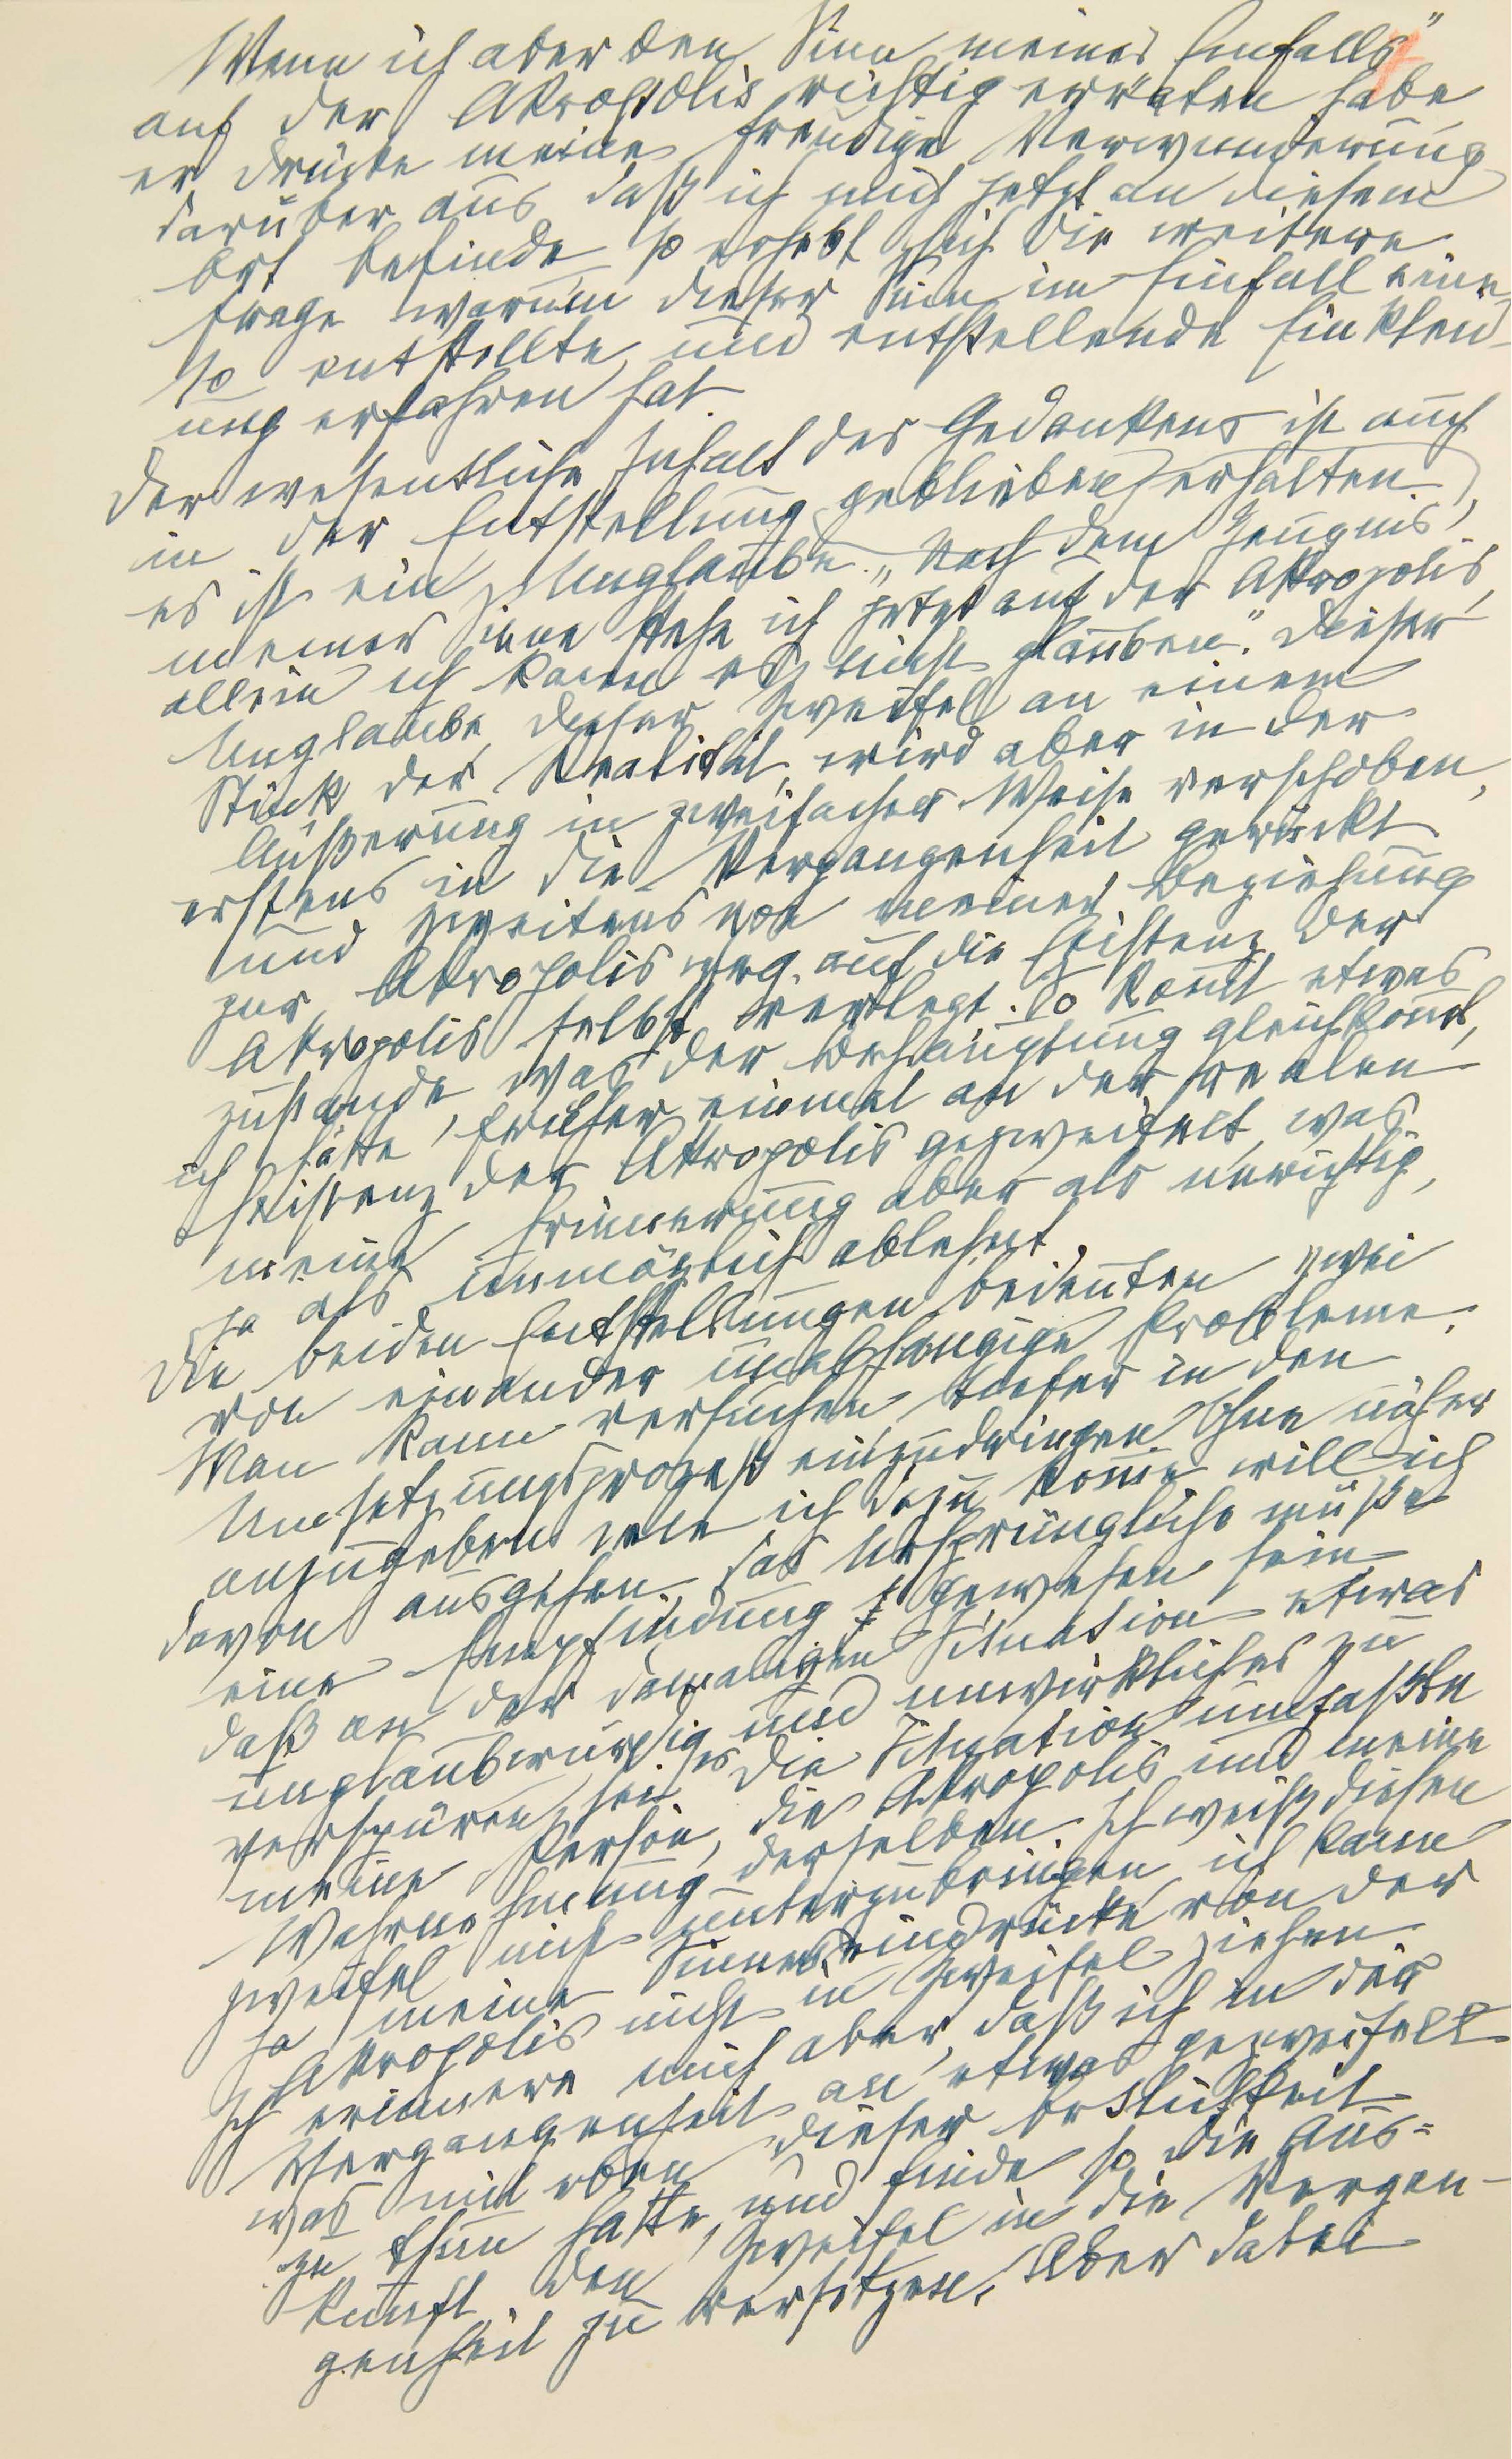 Wenn ich aber den Sinn meines Einfalls
auf der Akropolis richtig erraten habe
er drücke meine freudige Verwunderung
darüber aus daß ich mich jetzt an diesem
Ort befinde, so erhebt sich die weitere
Frage warum dieser Sinn im Einfall eine
so entstellte und entstellende Einkleid-
ung erfahren hat.
Der wesentliche Inhalt des Gedankens ist auch
in der Entstellung geblieben erhalten.
es ist ein Unglaube. „Nach dem Zeugnis
meiner Sinne stehe ich jetzt auf der Akropolis,
allein ich kann es nicht glauben." Dieser
Unglaube, dieser Zweifel an einem
Stück der Realität, wird aber in der
Äußerung in zweifacher Weise verschoben,
erstens in die Vergangenheit gerückt
und zweitens von meiner Beziehung
zur Akropolis weg auf die Existenz der
Akropolis selbst verlegt. So komt etwas
zustande was der Behauptung gleichkomt,
ich hätte früher einmal an der realen
Existenz der Akropolis gezweifelt, was
meine Erinnerung aber als unrichtig,
ja als unmöglich ablehnt.
Die beiden Entstellungen bedeuten zwei
von einander unabhängige Probleme.
Man kann versuchen tiefer in den
Umsetzungsprozeß einzudringen. Ohne näher
anzugeben wie ich dazu komme will ich
davon ausgehen, das Ursprüngliche müße
eine Empfindung gewesen sein
daß an der damaligen Situation etwas
unglaubwürdig und unwirkliches zu
verspüren sei. Die Situation umfaßte
meine Person, die Akropolis und meine
Wahrnehmung derselben. Ich weiß diesen
Zweifel nicht unterzubringen, ich kann
ja meine Sinneseindrücke von der
Akropolis nicht in Zweifel ziehen.
Ich erinnere mich aber, daß ich in der
Vergangenheit an etwas gezweifelt
was mit eben dieser Örtlichkeit
zu thun hatte, und finde so die Aus-
kunft, den Zweifel in die Vergan-
genheit zu versetzen. Aber dabei